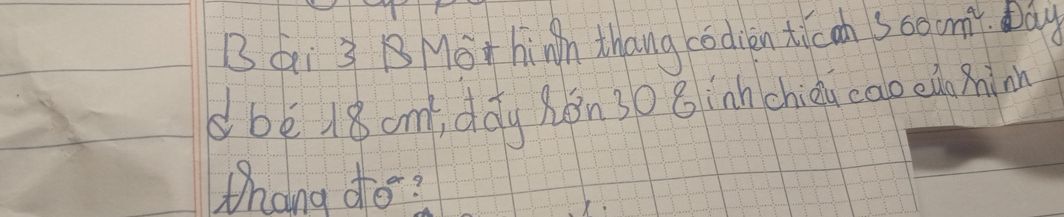 Bài 3 Một hình thang có diện tích 360cm². Đáy
bé 18 cm, đáy lớn 30 tính chiều cao của hình
thang đó?